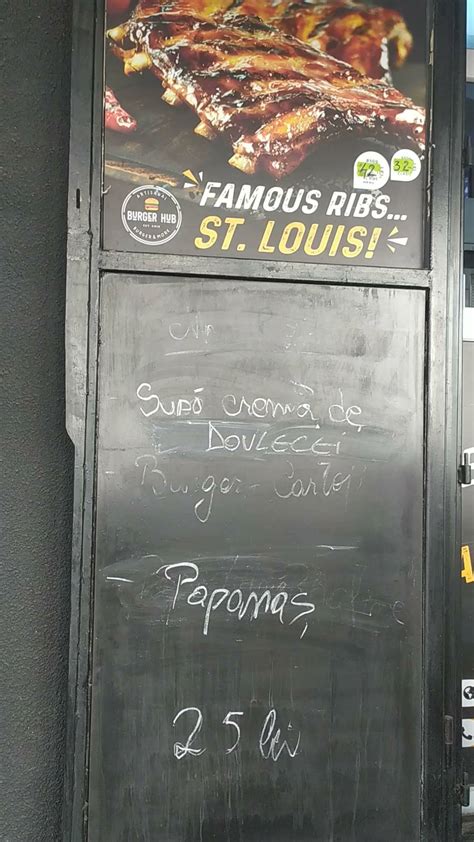 42
32
ARTISANAL
BURGER HUB
BURGER & MORE
FAMOUS RIBS...
ST. LOUIS!
Supă cremă de
DOVLECEI
- Burger - Cartofi
- Papanaș
25 lei